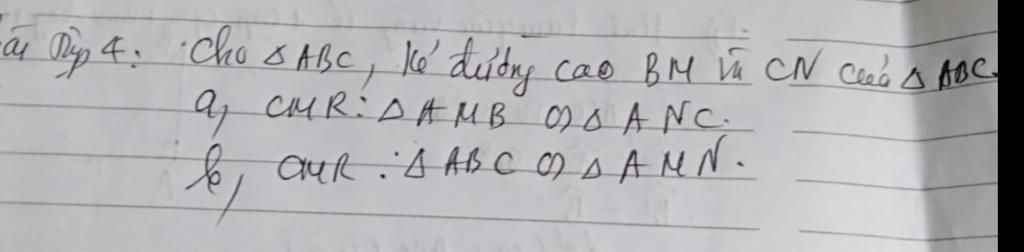 ài Tập 4: Cho Δ ABC, kẻ đường cao BM và CN của Δ ABC.
a, CMR: Δ AMB ∽ Δ ANC.
b, CMR: Δ ABC ∽ Δ AMN.